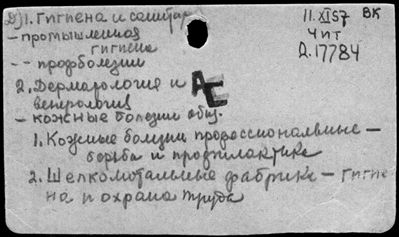 Д) 1. Гигиена и санитар
11.XI57 ВК
– промышленная
гигиена
Чит
Д.17784
-- профболезни
2. Дерматология и
венерология
АЕ
– кожные болезни общ.
1. Кожные болезни профессиональные –
борьба и профилактика
2. Шелкомотальные фабрики – Гигие
на и охрана труда